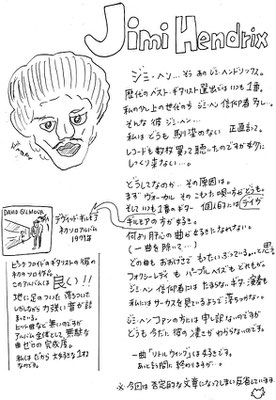 Jimi Hendrix
ジミ・ヘン…そう あの ジミ・ヘンドリックス。
歴代のベスト・ギタリスト選出ではいつも1番。
私の少し上の世代の方 ジミ・ヘン信仰者 多し。
そんな彼 ジミ・ヘン…
私は どうも 馴染めない 正直言って。
レコードも数枚買って聴いたのですがダメ
しっくりこない…。
どうしてなのか… その原因は。
まず ヴォーカル そのこもった唄い方がどうも。
そして いつも1番のギター 個人的には
ギルモアの方が好きと。
何より 好きな曲がまるでありません。
(一曲を除いて…)
どの曲も おおげさで もたいぶっている…と思う
フォクシーレディも パープルヘイズも どれもが。
ジミ・ヘン信仰者には たまらない ギター演奏も
私にはサーカスを見ているようで 深みがない。
ジミ・ヘンファンの方には申し訳ないのですが
どうも 今だに 彼の凄さがわからないのです。
一曲「リトルウィング」は好きです。
あっと言う間に 終わりますが…。
※今回は否定的な文章になってしまい反省しています
DAVID GILMOUR
デヴィッド・ギルモア
ファーストソロアルバム
ピンク・フロイドのギタリストの彼の
初のソロアルバム
このアルバムは 良く!!
地に足のついた 落ちついた
しかしながら 力強い音が詰
まっている。
ヒット曲など 無いのですが
アルバム全体として 無駄な
曲ゼロの完成度。
私は だから 大好きな1枚
なのです。